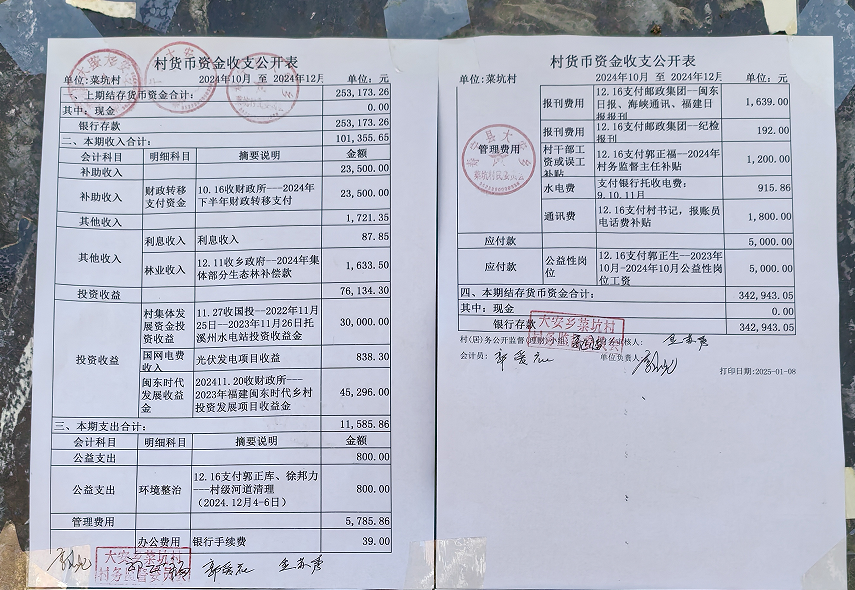 村货币资金收支公开表
单位:菜坑村 2024年10月 至 2024年12月 单位：元
一、上期结存货币资金合计： 253,173.26
其中：现金 0.00
银行存款 253,173.26
二、本期收入合计： 101,355.65
会计科目 明细科目 摘要说明 金额
补助收入 23,500.00
补助收入 财政转移支付资金 10.16收财政所——2024年下半年财政转移支付 23,500.00
其他收入 1,721.35
其他收入 利息收入 利息收入 87.85
林业收入 12.11收乡政府--2024年集体部分生态林补偿款 1,633.50
投资收益 76,134.30
投资收益 村集体发展资金投资收益 11.27收国投--2022年11月25日--2023年11月26日托溪州水电站投资收益金 30,000.00
国网电费收入 光伏发电项目收益 838.30
闽东时代发展收益金 202411.20收财政所---2023年福建闽东时代乡村投资发展项目收益金 45,296.00
三、本期支出合计： 11,585.86
会计科目 明细科目 摘要说明 金额
公益支出 800.00
公益支出 环境整治 12.16支付郭正库、徐邦力---村级河道清理（2024.12月4-6日） 800.00
管理费用 5,785.86
办公费用 银行手续费 39.00
大安乡菜坑村
村务监督委员会
村货币资金收支公开表
单位:菜坑村 2024年10月 至 2024年12月 单位：元
管理费用 报刊费用 12.16支付邮政集团--闽东日报、海峡通讯、福建日报报刊 1,639.00
报刊费用 12.16支付邮政集团--纪检报刊 192.00
村干部工资或误工补贴 12.16支付郭正福--2024年村务监督主任补贴 1,200.00
水电费 支付银行托收电费：9.10.11月 915.86
通讯费 12.16支付村书记，报账员电话费补贴 1,800.00
应付款 5,000.00
应付款 公益性岗位 12.16支付郭正生--2023年10月-2024年10月公益性岗位工资 5,000.00
四、本期结存货币资金合计： 342,943.05
其中：现金 0.00
银行存款 342,943.05
大安乡菜坑村
村务监督委员会
村(居)务公开监督(理财)小组: 审核人:
会计员: 单位负责人:
打印日期:2025-01-08